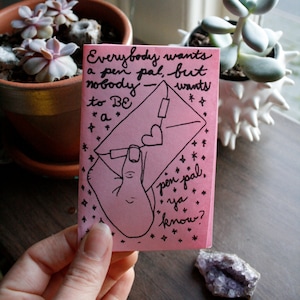 Everybody wants
a pen pal, but
nobody wants
to BE
a
pen pal,
ya
know?